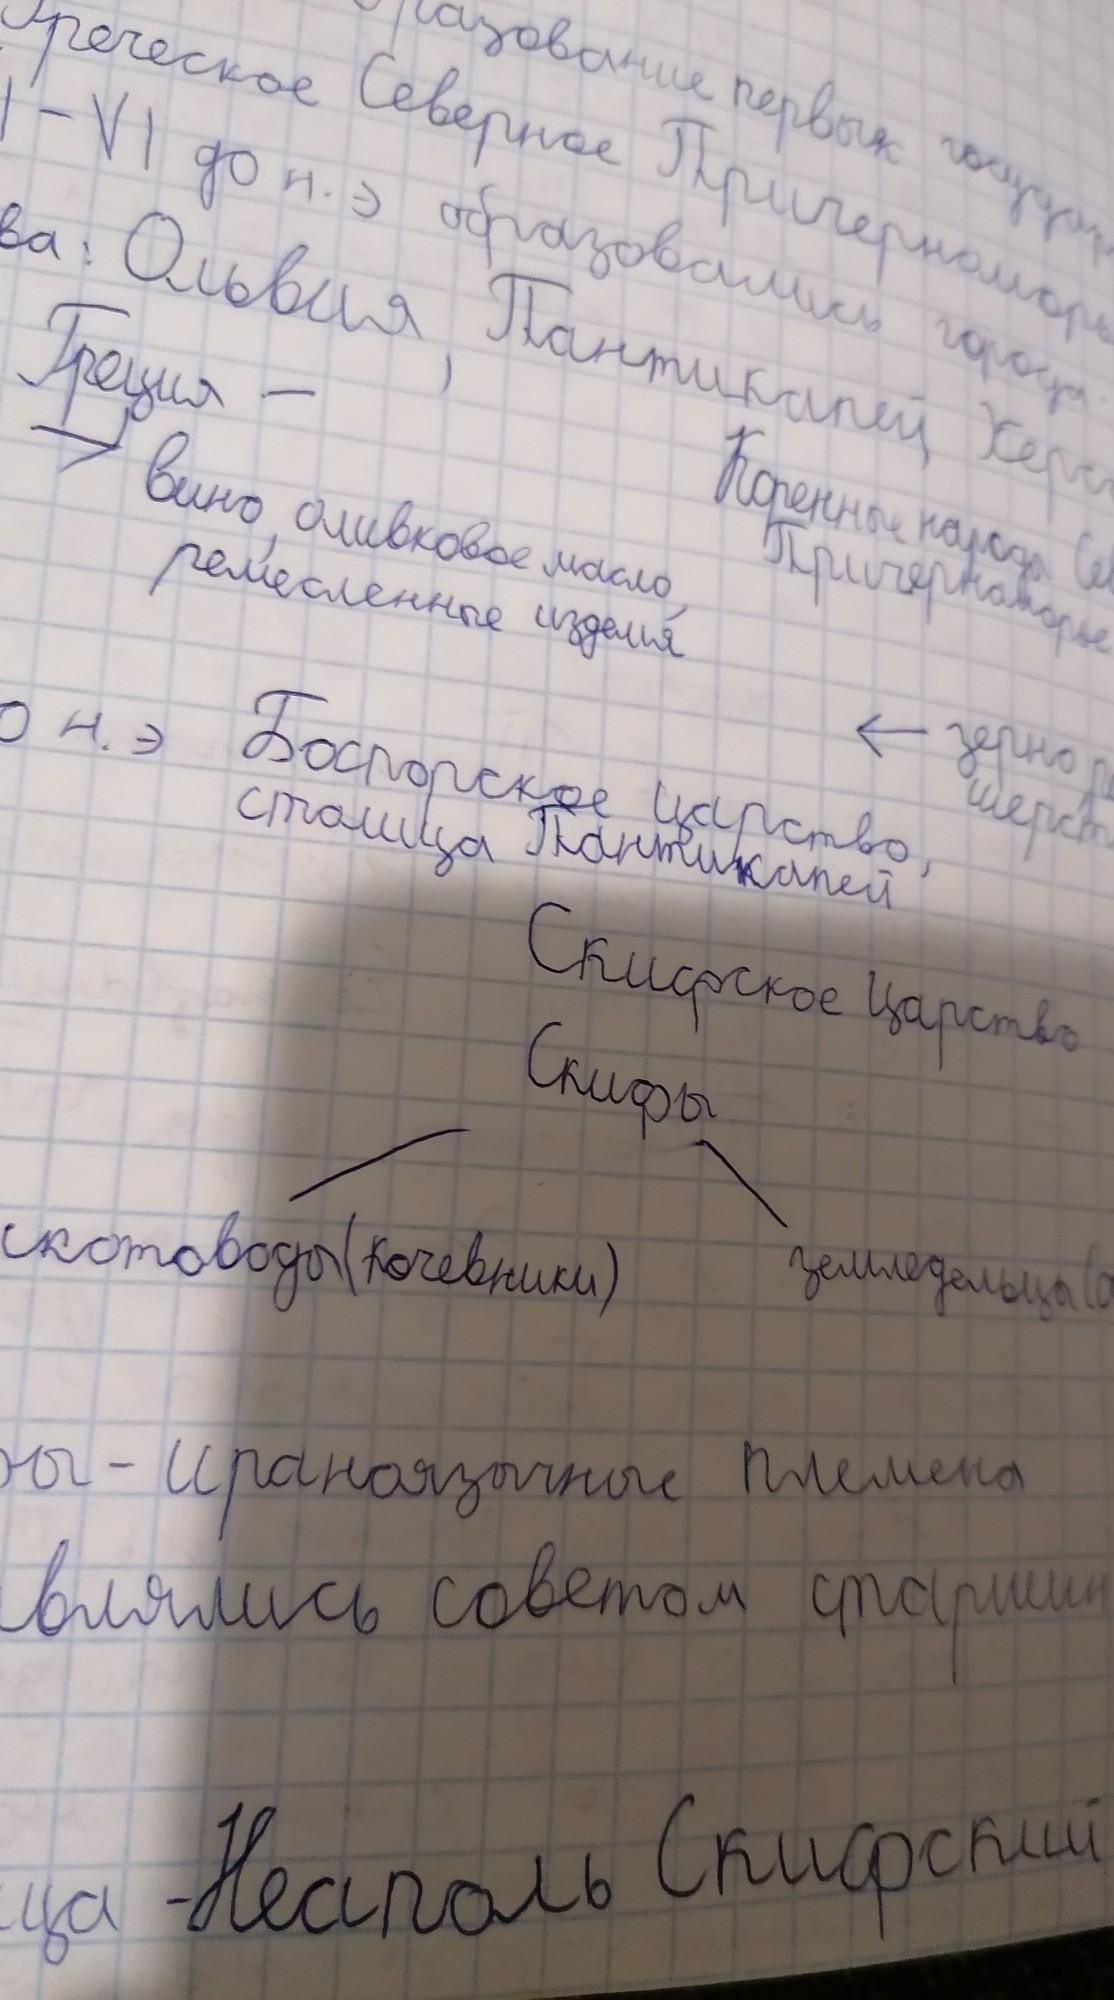 разование первых государ
Греческое Северное Причерноморь
I - VI до н.э образовались города-
ва: Ольвия, Пантикапей Херс
Греция —
→
вино, оливковое масло,
ремесленные изделия
Коренные народы Сев
Причерноморье
← зерно
шерст
о н.э Боспорское царство,
столица Пантикапей
Скифское царство
Скифы
скотоводы (кочевники)
земледельцы (о
ы - ираноязычные племена
влялись советом старшин
ца - Неаполь Скифский